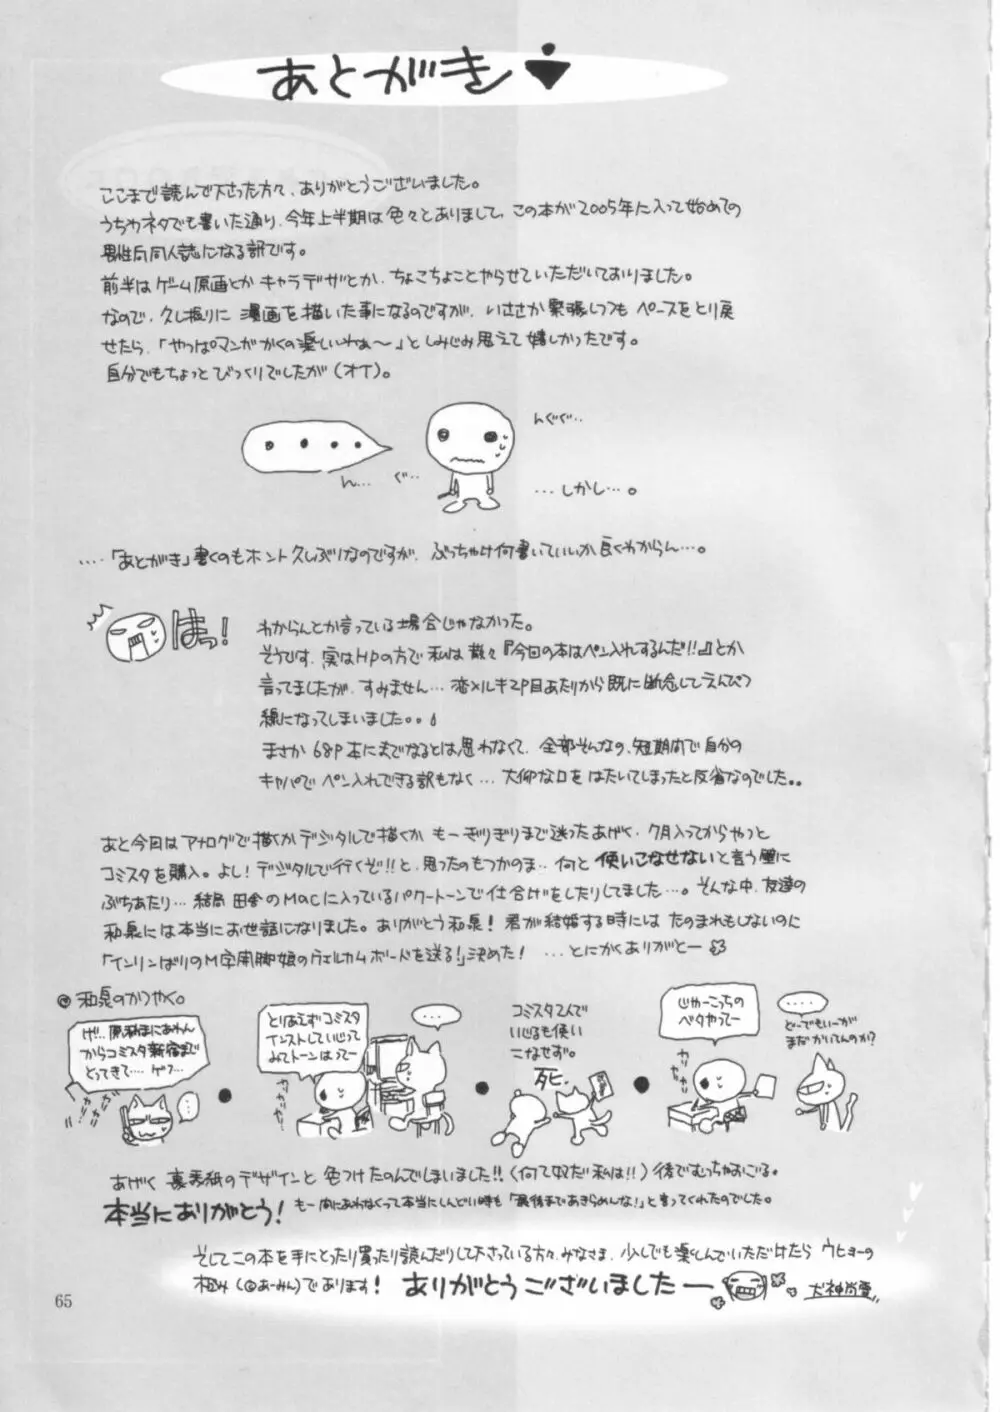 あとがき
ここまで読んで下さった方々、ありがとうございました。
うちわネタでも書いた通り、今年上半期は色々とありまして、この本が2005年に入って始めての
男性向同人誌になる訳です。
前半はゲーム原画とかキャラデザとか、ちょこちょことやらせていただいておりました。
なので、久し振りに漫画を描いた事になるのですが、いささか緊張しつつもペースをとり戻
せたら、「やっぱマンガかくの楽しいわぁ〜」としみじみ思えて嬉しかったです。
自分でもちょっとびっくりでしたが(オイ)。
・・・・
ん… ぐ…
んぐぐ…
…しかし…。
….「あとがき」書くのもホント久しぶりなのですが、ぶっちゃけ何書いていいか良くわからん…。
はっ!
わからんとか言っている場合じゃなかった。
そうです、実はHPの方で私は散々『今回の本はペン入れするんだ!!』とか
言ってましたが、すみません…恋メルキ2P目あたりから既に断念してえんぴつ
線になってしまいました。。
まさか68P本にまでなるとは思わなくて、全部そんなの、短期間で自分の
キャパでペン入れできる訳もなく…大仰な口をはたいてしまったと反省なのでした。。
あと今回はアナログで描くかデジタルで描くかもーぎりぎりまで迷ったあげく、7月入ってからやっと
コミスタを購入。よし!デジタルで行くぞ!!と、思ったのもつかのま…何と使いこなせないと言う壁に
ぶちあたり…結局田舎のMacに入っているパワートーンで仕合げをしたりしてました…。そんな中、友達の
和泉には本当にお世話になりました。ありがとう和泉!君が結婚する時にはたのまれもしないのに
「インリンばりのM字開脚娘のウェルカムボードを送る!」決めた! …とにかくありがとー
和泉のかつやく。
げ!!..原稿まにあわん
からコミスタ新宿まで
とってきて.... ゲフ...
…
とりあえずコミスタ
インストして心じって
みてトーンはってー
…
カリカリ
コミスタてんで
いじるも使い
こなせず。
死.
じゃーこっちの
ベタやってー
カリカリ
....
どーでもいーが
まだかいてんのか?
あげく裏表紙のデザインと色つけたのんでしまいました!!(何て奴だ私は!!)後でむっちゃおごる。
本当にありがとう! もー間にあわなくって本当にしんどい時も「最後まであきらめんな!」と言ってくれたのでした。
そしてこの本を手にとったり買ったり読んだりして下さっている方々、みなさま、少しでも楽しんでいただけたらウヒョーの
極み(@あーみん)であります! ありがとうございましたー 犬神尚雪
65